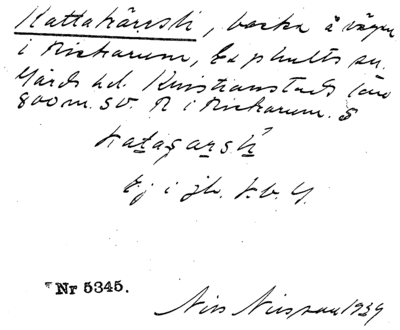 Kattakärrsli, backa å vägen
i Rickarum, Ex phults sn.
Gärds hd. Kristianstads län
800 m. SV. R i Rickarum. S
katagarsli
Ej i jb. k.b. G.
Nr 5345.
Nils Nilsson 1939